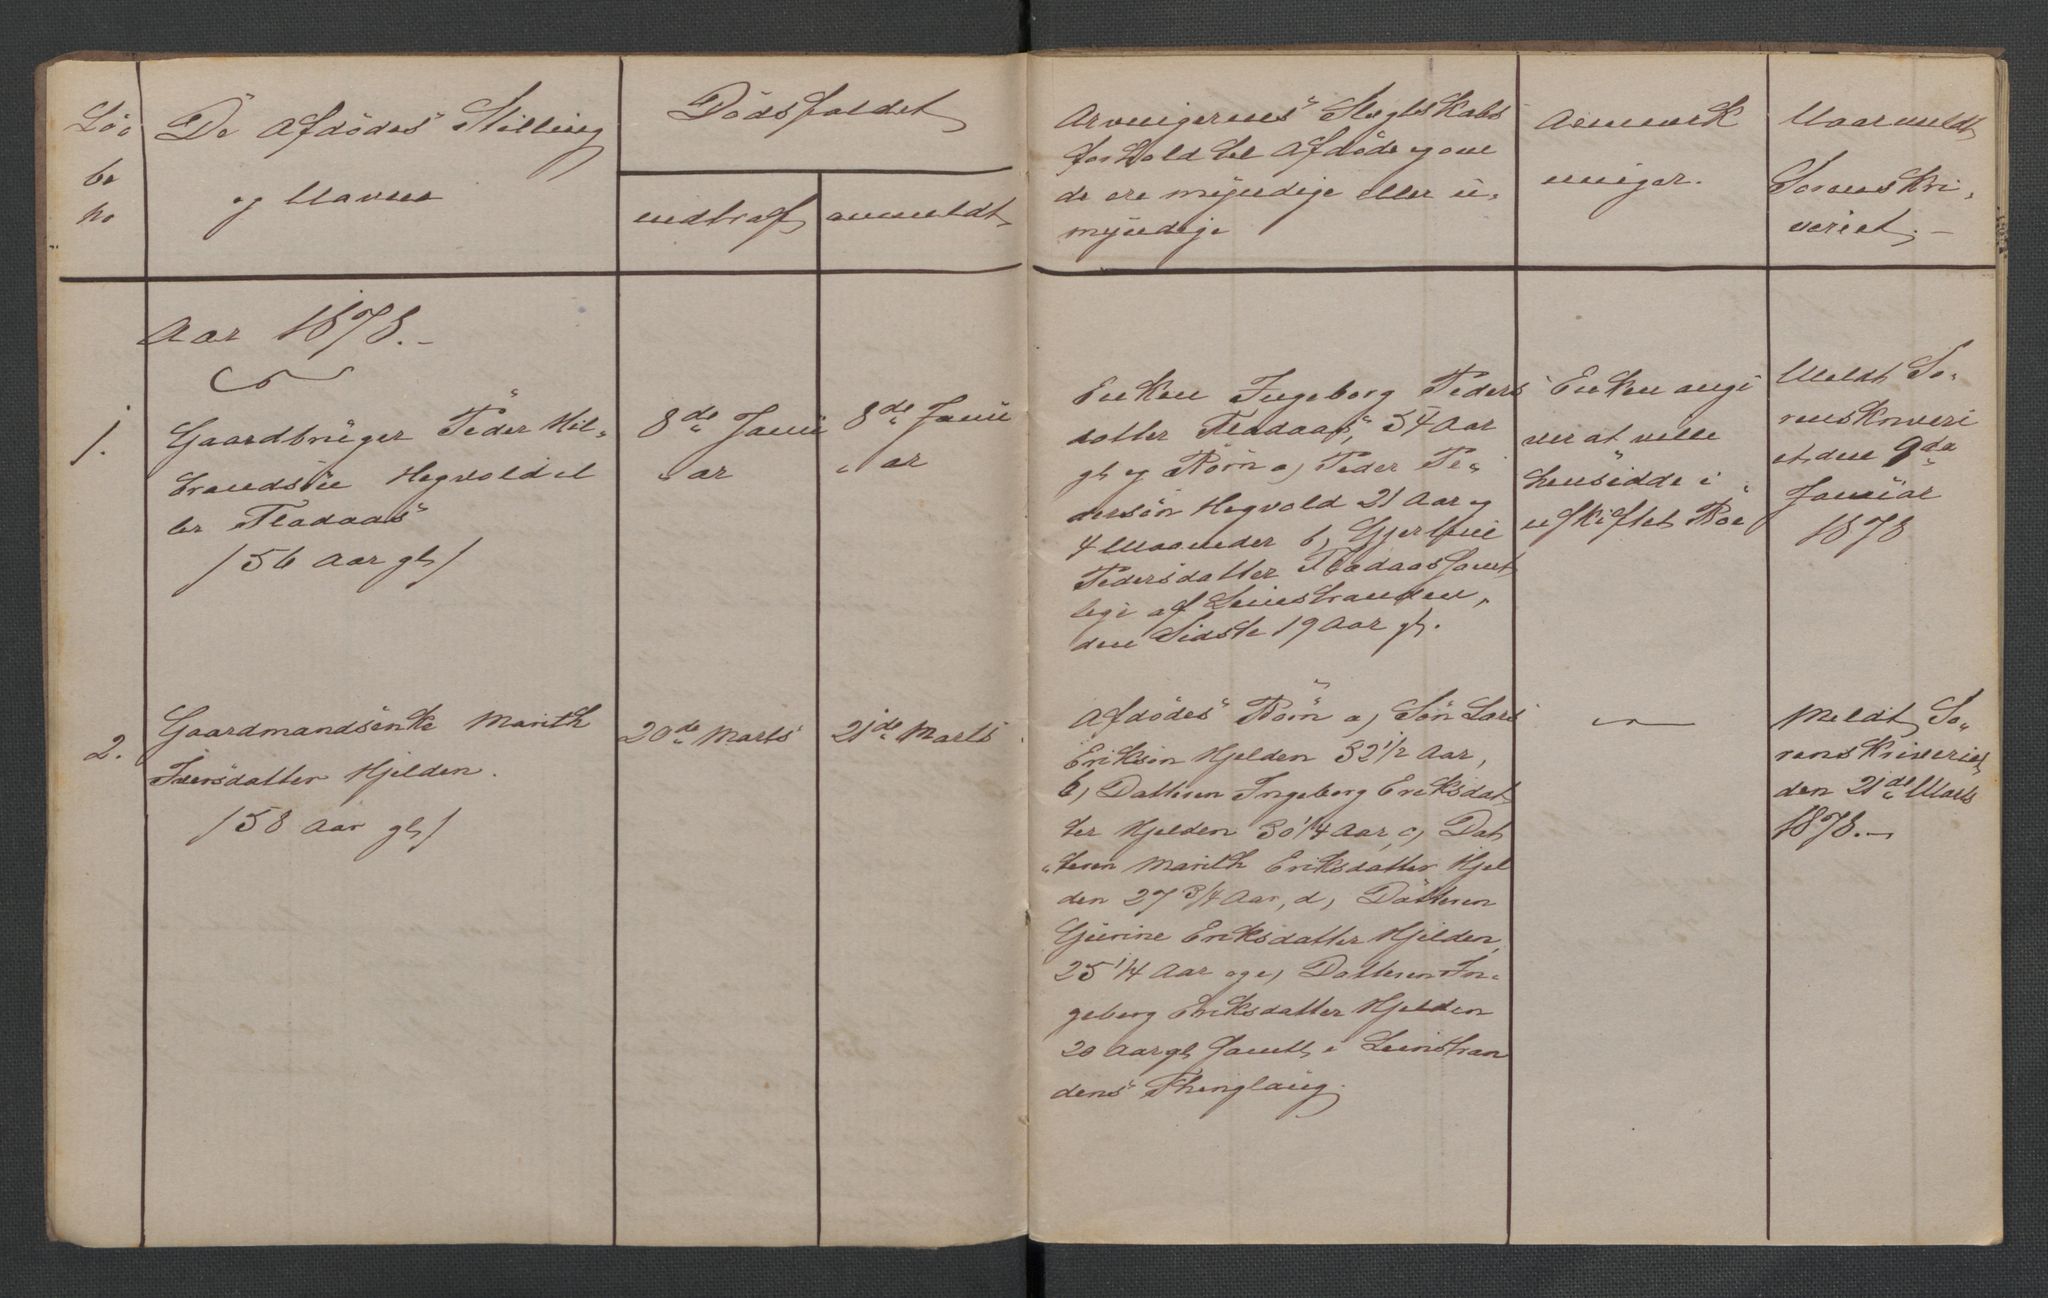 Löö
be
no
De Afdödes Stilling
og Navne
Dödsfaldet
indtraf
anmeldt
Arvingernes Slægtskabs
forhold til Afdöde og om
de ere myndige eller u-
myndige
Anmærk
ninger.
Naar meldt
Sorenskri-
veriet.-
Aar 1878.-
1.
Gaardbrüger Peder Hil-
brandsön Hegvold el
ler Fladaas
/56 Aar gl/
8de Janu
ar
8de Janu
ar
Enken Ingeborg Peders
datter Fladaas, 54 Aar
gl og Börn a, Peder Pe-
dersön Hegvold 21 Aar og
4 Maaneder b, Gjertrui
Pedersdatter Fladaas samt
lige af Leinstranden,
den sidste 19 Aar gl.
Enken angi
ver at ville
hensidde i
uskiftet Boe
Meldt So-
renskriveri
et den 9de
Januar
1878
2.
Gaardmandsenke Marith
Iversdatter Hjelden.
/58 Aar gl/
20de Marts
21de Marts
Afdödes Börn a, Sön Lars
Eriksön Hjelden 32 1/2 Aar,
b, Datteren Ingeborg Eriksdat
ter Hjelden 30 1/4 Aar, c, Dat
teren Marith Eriksdatter Hjel
den 27 3/4 Aar, d, Datteren
Gurine Eriksdatter Hjelden,
25 1/4 Aar og e, Datteren In-
geborg Eriksdatter Hjelden
20 Aar gl samtl i Leinstran
dens Thinglaug.
Meldt So-
renskriveriet
den 21de Marts
1878.-